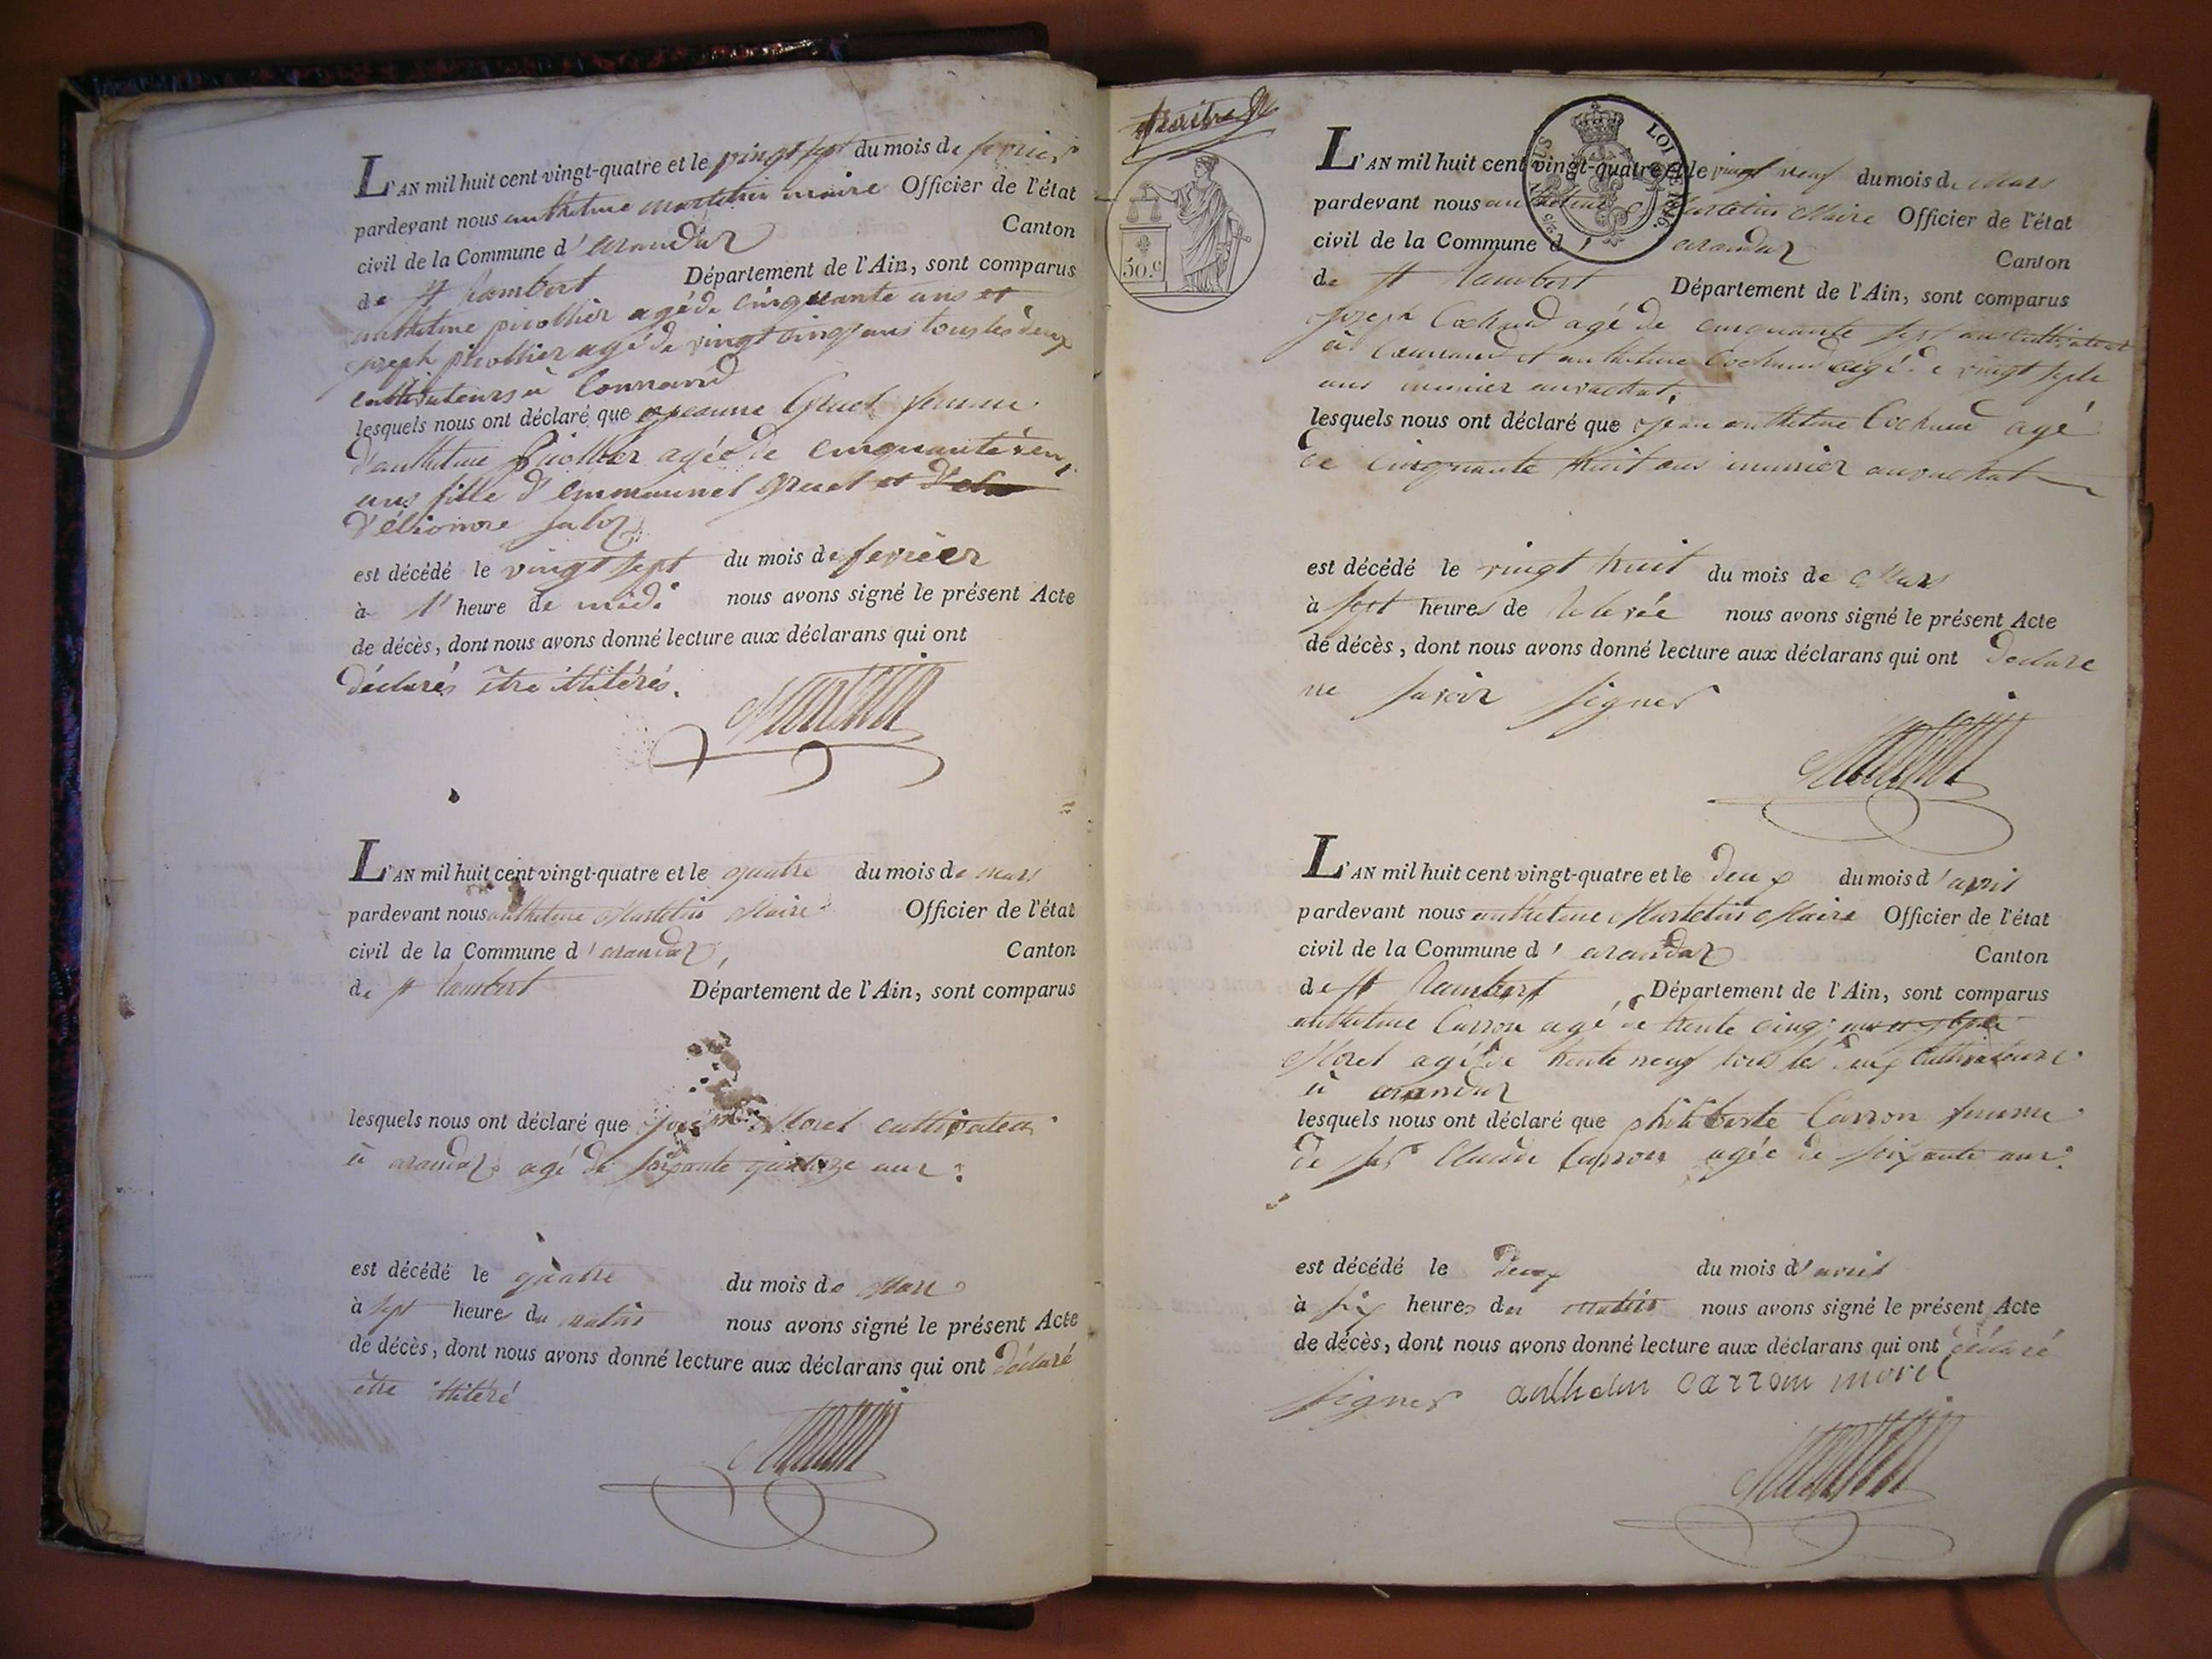 L'AN mil huit cent vingt-quatre et le vingt sept du mois de fevrier
pardevant nous anthelme martelin maire Officier de l'état
civil de la Commune d'arandaz Canton
de st Rambert Département de l'Ain, sont comparus
anthelme picollier agé de cinquante ans et
joseph picollier agé de vingt cinq ans tous les deux
cultivateurs à Connand
lesquels nous ont déclaré que jeanne Gruel femme
d'anthelme picollier agée de cinquante
ans fille d'emmanuel gruel et
d'élionore
est décédé le vingt sept du mois de fevrier
à 1' heure de midi nous avons signé le présent Acte
de décès, dont nous avons donné lecture aux déclarans qui ont
déclarés être illitérés.
Martelin
L'AN mil huit cent vingt-quatre et le quatre du mois de mars
pardevant nous anthelme Martelin Maire Officier de l'état
civil de la Commune d'arandaz, Canton
de st Rambert Département de l'Ain, sont comparus
lesquels nous ont déclaré que joseph Morel cultivateur
à arandaz agé de soixante quatorze ans
est décédé le quatre du mois de Mars
à sept heures du matin nous avons signé le présent Acte
de décès, dont nous avons donné lecture aux déclarans qui ont déclaré
être illitéré
Martelin
50.c
LOI DE 1816.
L'AN mil huit cent vingt-quatre et le vingt neuf du mois de Mars
pardevant nous anthelme Martelin Maire Officier de l'état
civil de la Commune d' arandaz Canton
de st Rambert Département de l'Ain, sont comparus
joseph Cochand agé de cinquante sept ans cultivateur
à Counand et anthelme Cochand agé de vingt sept
ans munier
lesquels nous ont déclaré que jean anthelme Cochand agé
de cinquante huit ans munier
est décédé le vingt huit du mois de Mars
à sept heures de relevée nous avons signé le présent Acte
de décès, dont nous avons donné lecture aux déclarans qui ont declare
ne savoir signer
Martelin
L'AN mil huit cent vingt-quatre et le deux du mois d'avril
pardevant nous anthelme Martelin Maire Officier de l'état
civil de la Commune d' arandaz Canton
de st Rambert Département de l'Ain, sont comparus
anthelme Carron agé de trente cinq ans et
Morel agé de trente neuf tous les deux cultivateurs
à arandaz
lesquels nous ont déclaré que philiberte Carron femme
de Claude Carron agée de soixante ans
est décédé le deux du mois d'avril
à six heures du matin nous avons signé le présent Acte
de décès, dont nous avons donné lecture aux déclarans qui ont déclaré
signer anthelm carron morel
Martelin